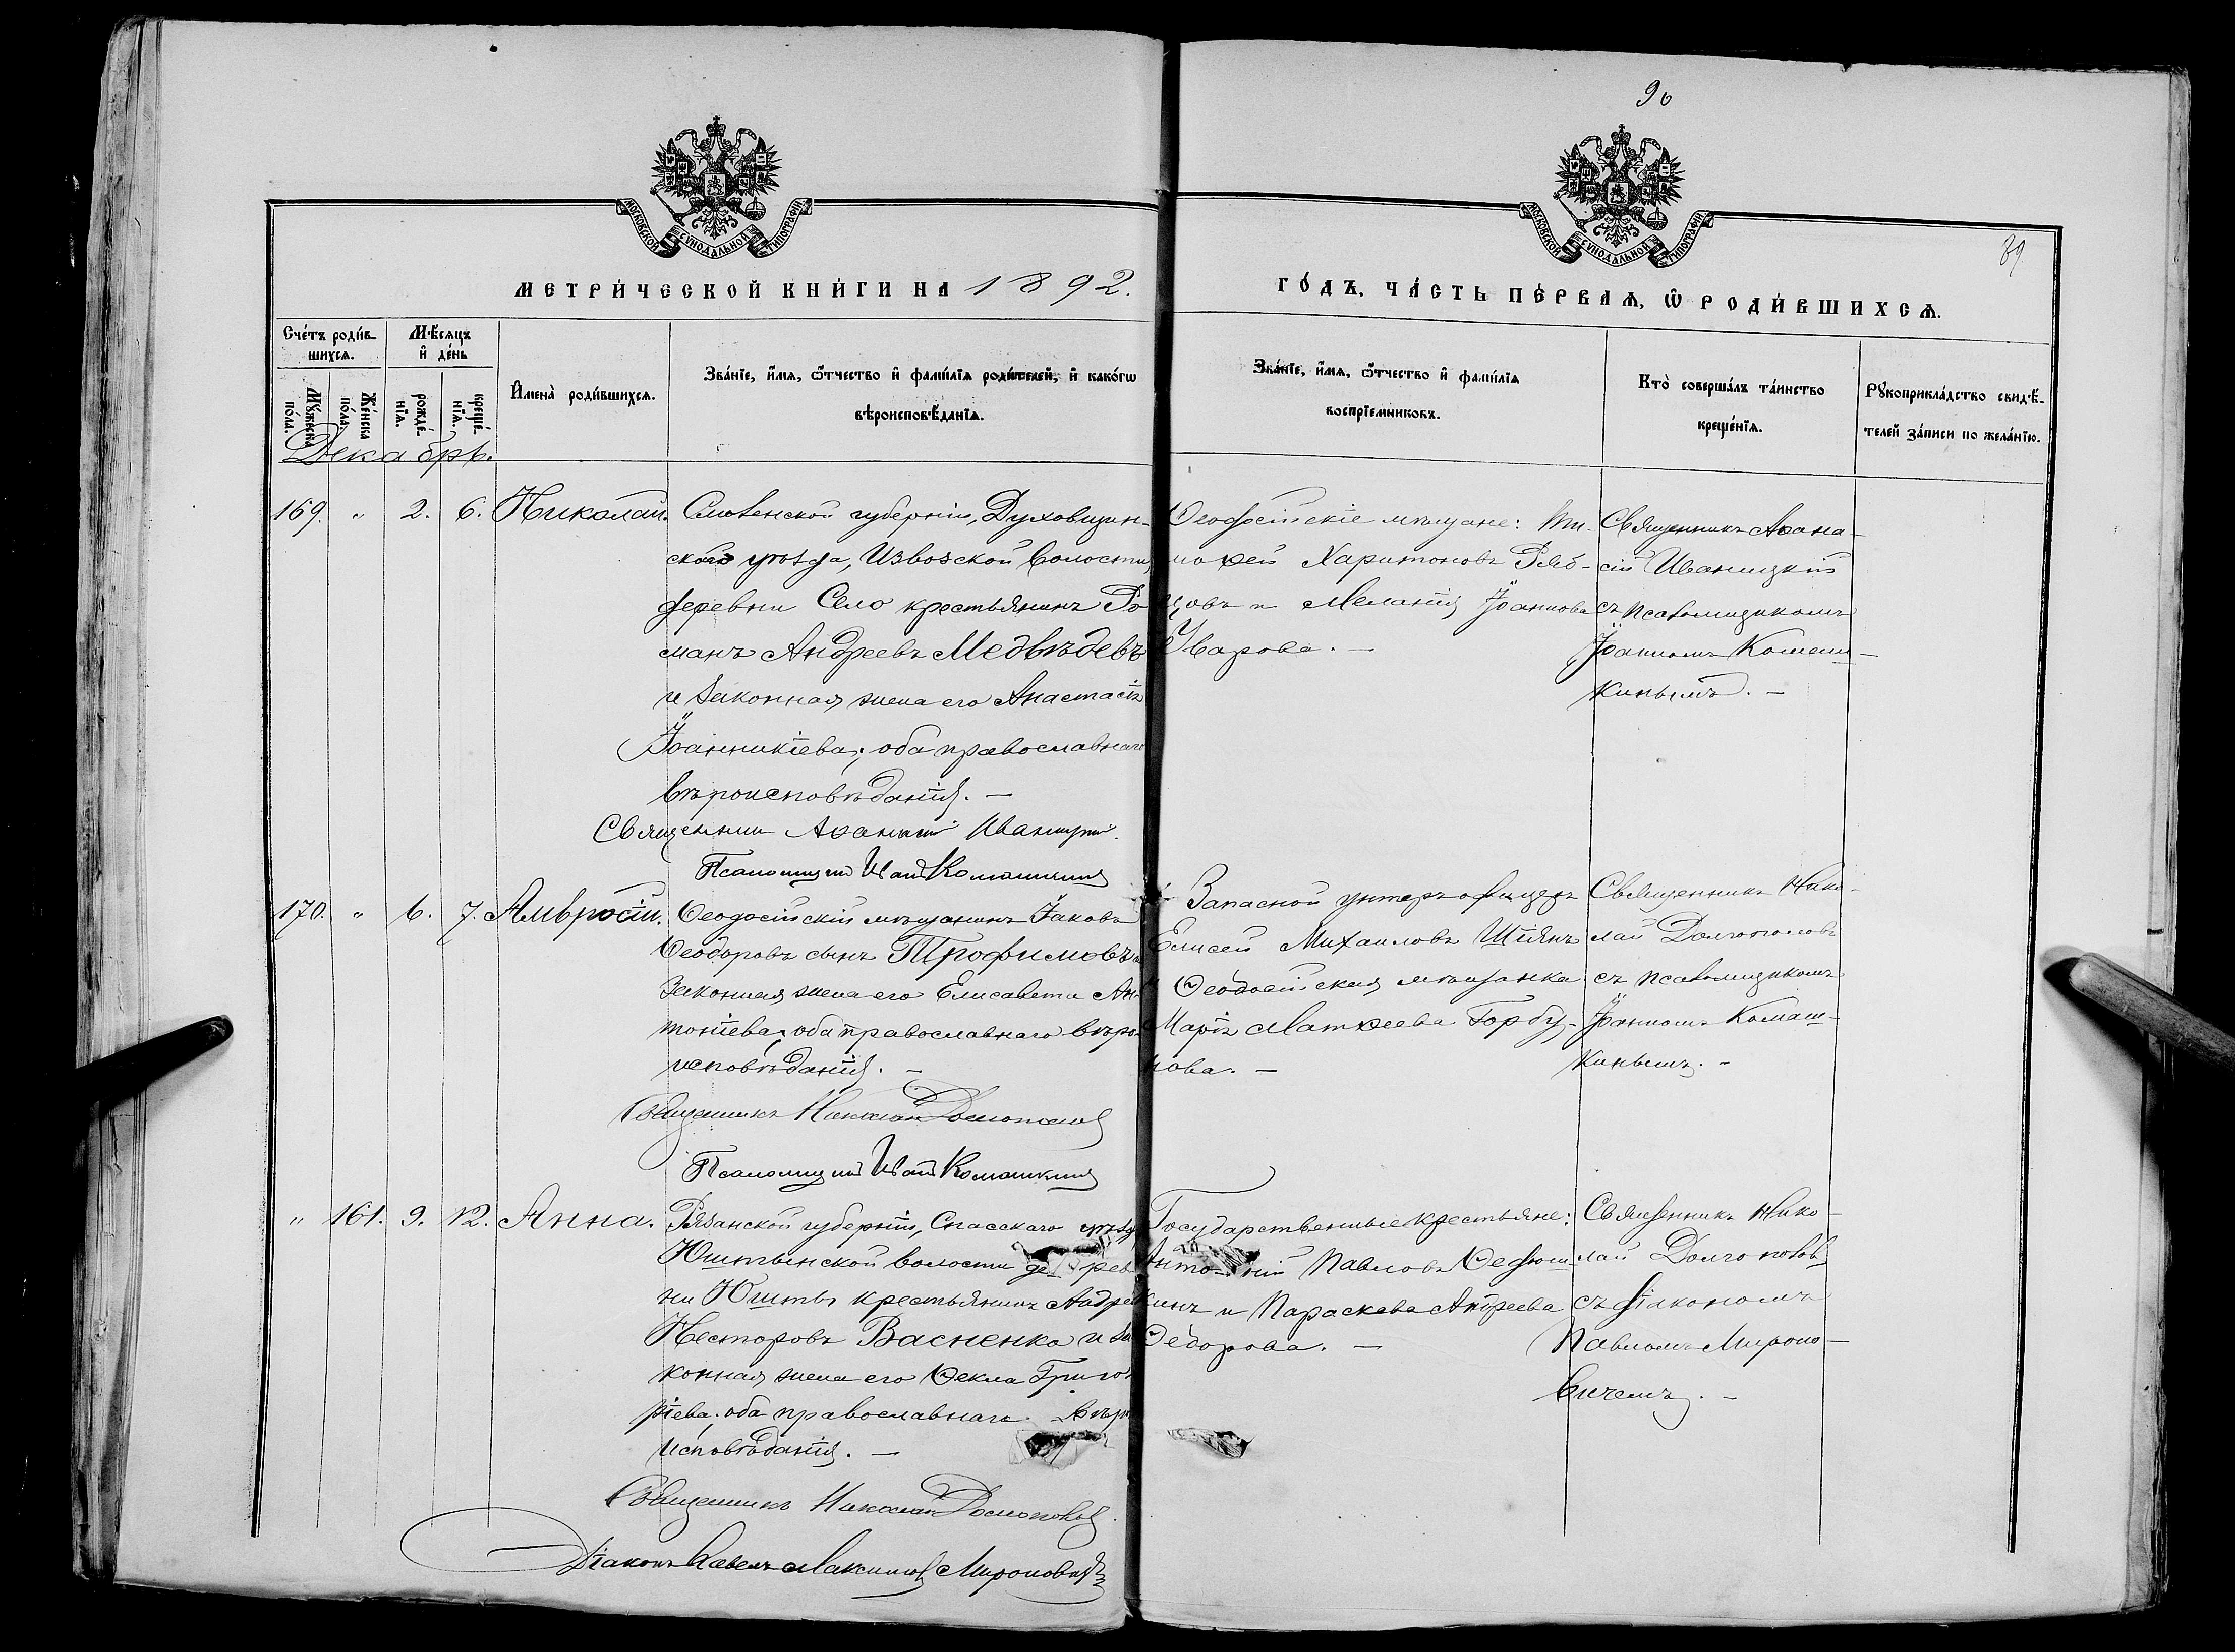 90
89
МОСКОВСКОЙ СѴНОДАЛЬНОЙ ТИПОГРАФІИ
МОСКОВСКОЙ СѴНОДАЛЬНОЙ ТИПОГРАФІИ
МЕТРИ́ЧЕСКОЙ КНИ́ГИ НА 1892.
ГО́ДЪ, ЧА́СТЬ ПЕ́РВАѦ, Ѡ РОДИ́ВШИХСѦ.
Сче́тъ роди́в-
шихсѧ.
Мѣ́сяцъ
и де́нь
Мꙋ́жеска
по́ла.
Же́нска
по́ла.
рожде́-
нїѧ.
креще́-
нїѧ.
Имена̀ роди́вшихсѧ.
Зва́нїе, и́мѧ, ѻ́тчество и фами́лїѧ роди́телей, и како́гѡ
вѣроисповѣ́данїѧ.
Зва́нїе, и́мѧ, ѻ́тчество и фами́лїѧ
воспрїемниковъ.
Кто̀ соверша́лъ та́инство
креще́нїѧ.
Рꙋкоприкла́дство свидѣ́-
телей за́писи по жела́нїю.
Декабрь.
169. " 2. 6. Николай.
Смоленской губерніи, Духовщин-
скаго уѣзда, Извозской волости,
деревни Село крестьянинъ Ро-
манъ Андреевъ Медвѣдевъ
и законная жена его Анастасія
Іоанникіева; оба православнаго
вѣроисповѣданія. —
Священник Аѳанасій Иваницкій
Псаломщикъ Иванъ Комашкинъ
Ѳеодосійскіе мѣщане: Ти-
моѳей Харитоновъ Ряб-
цовъ и Меланія Іоаннова
Уварова. —
Священникъ Аѳана-
сій Иваницкій
съ псаломщикомъ
Іоанномъ Комаш-
кинымъ. —
170. " 6. 7. Амвросій.
Ѳеодосійскій мѣщанинъ Іаковъ
Ѳеодоровъ сынъ Трофимовъ и
законная жена его Елисавета Ан-
тоніева; оба православнаго вѣро-
исповѣданія. —
Священникъ Николай Долгополов
Псаломщикъ Иванъ Комашкинъ
Запасной унтеръ-офицеръ
Елисей Михаиловъ Шиянъ
и Ѳеодосійская мѣщанка
Марія Матѳеева Горбу-
нова. —
Священникъ Нико-
лай Долгополовъ
съ псаломщикомъ
Іоанномъ Комаш-
кинымъ. —
" 161. 9. 12. Анна.
Рязанской губерніи, Спасскаго уѣзда
Юштьинской волости дерев-
ни Юшты крестьянинъ Андрей
Несторовъ Васненко и за-
конная жена его Ѳекла Григо-
ріева; оба православнаго вѣро-
исповѣданія. —
Священникъ Николай Долгополов
Діаконъ Павелъ Максимов Мироновичъ
Государственные крестьяне:
Антоній Павловъ Ѳедюш-
кинъ и Параскева Андреева
Ѳедорова. —
Священникъ Нико-
лай Долгополовъ
съ діакономъ
Павломъ Мироно-
вичемъ. —